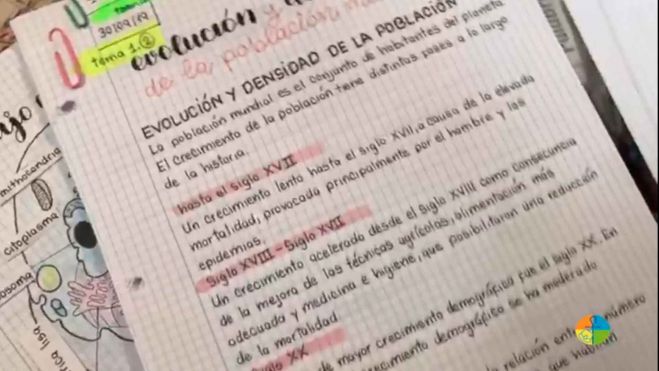 30/09/19
tema 1.②
evolución y
de la población
EVOLUCIÓN Y DENSIDAD DE LA POBLACIÓN
La población mundial es el conjunto de habitantes del planeta.
El crecimiento de la población tiene distintos pasos a lo largo
de la historia.
hasta el siglo XVII
Un crecimiento lento hasta el siglo XVII, a causa de la elevada
mortalidad, provocada principalmente por el hambre y las
epidemias.
Siglo XVIII - Siglo XVII
Un crecimiento acelerado desde el siglo XVIII como consecuencia
de la mejora de las técnicas agrícolas, alimentación más
adecuada y medicina e higiene, que posibilitaron una reducción
de la mortalidad
Siglo XX
de mayor crecimiento demográfico fue el siglo XX. En
crecimiento demográfico se ha moderado
la relación entre número
que habitan
mitocondria
citoplasma
lisa